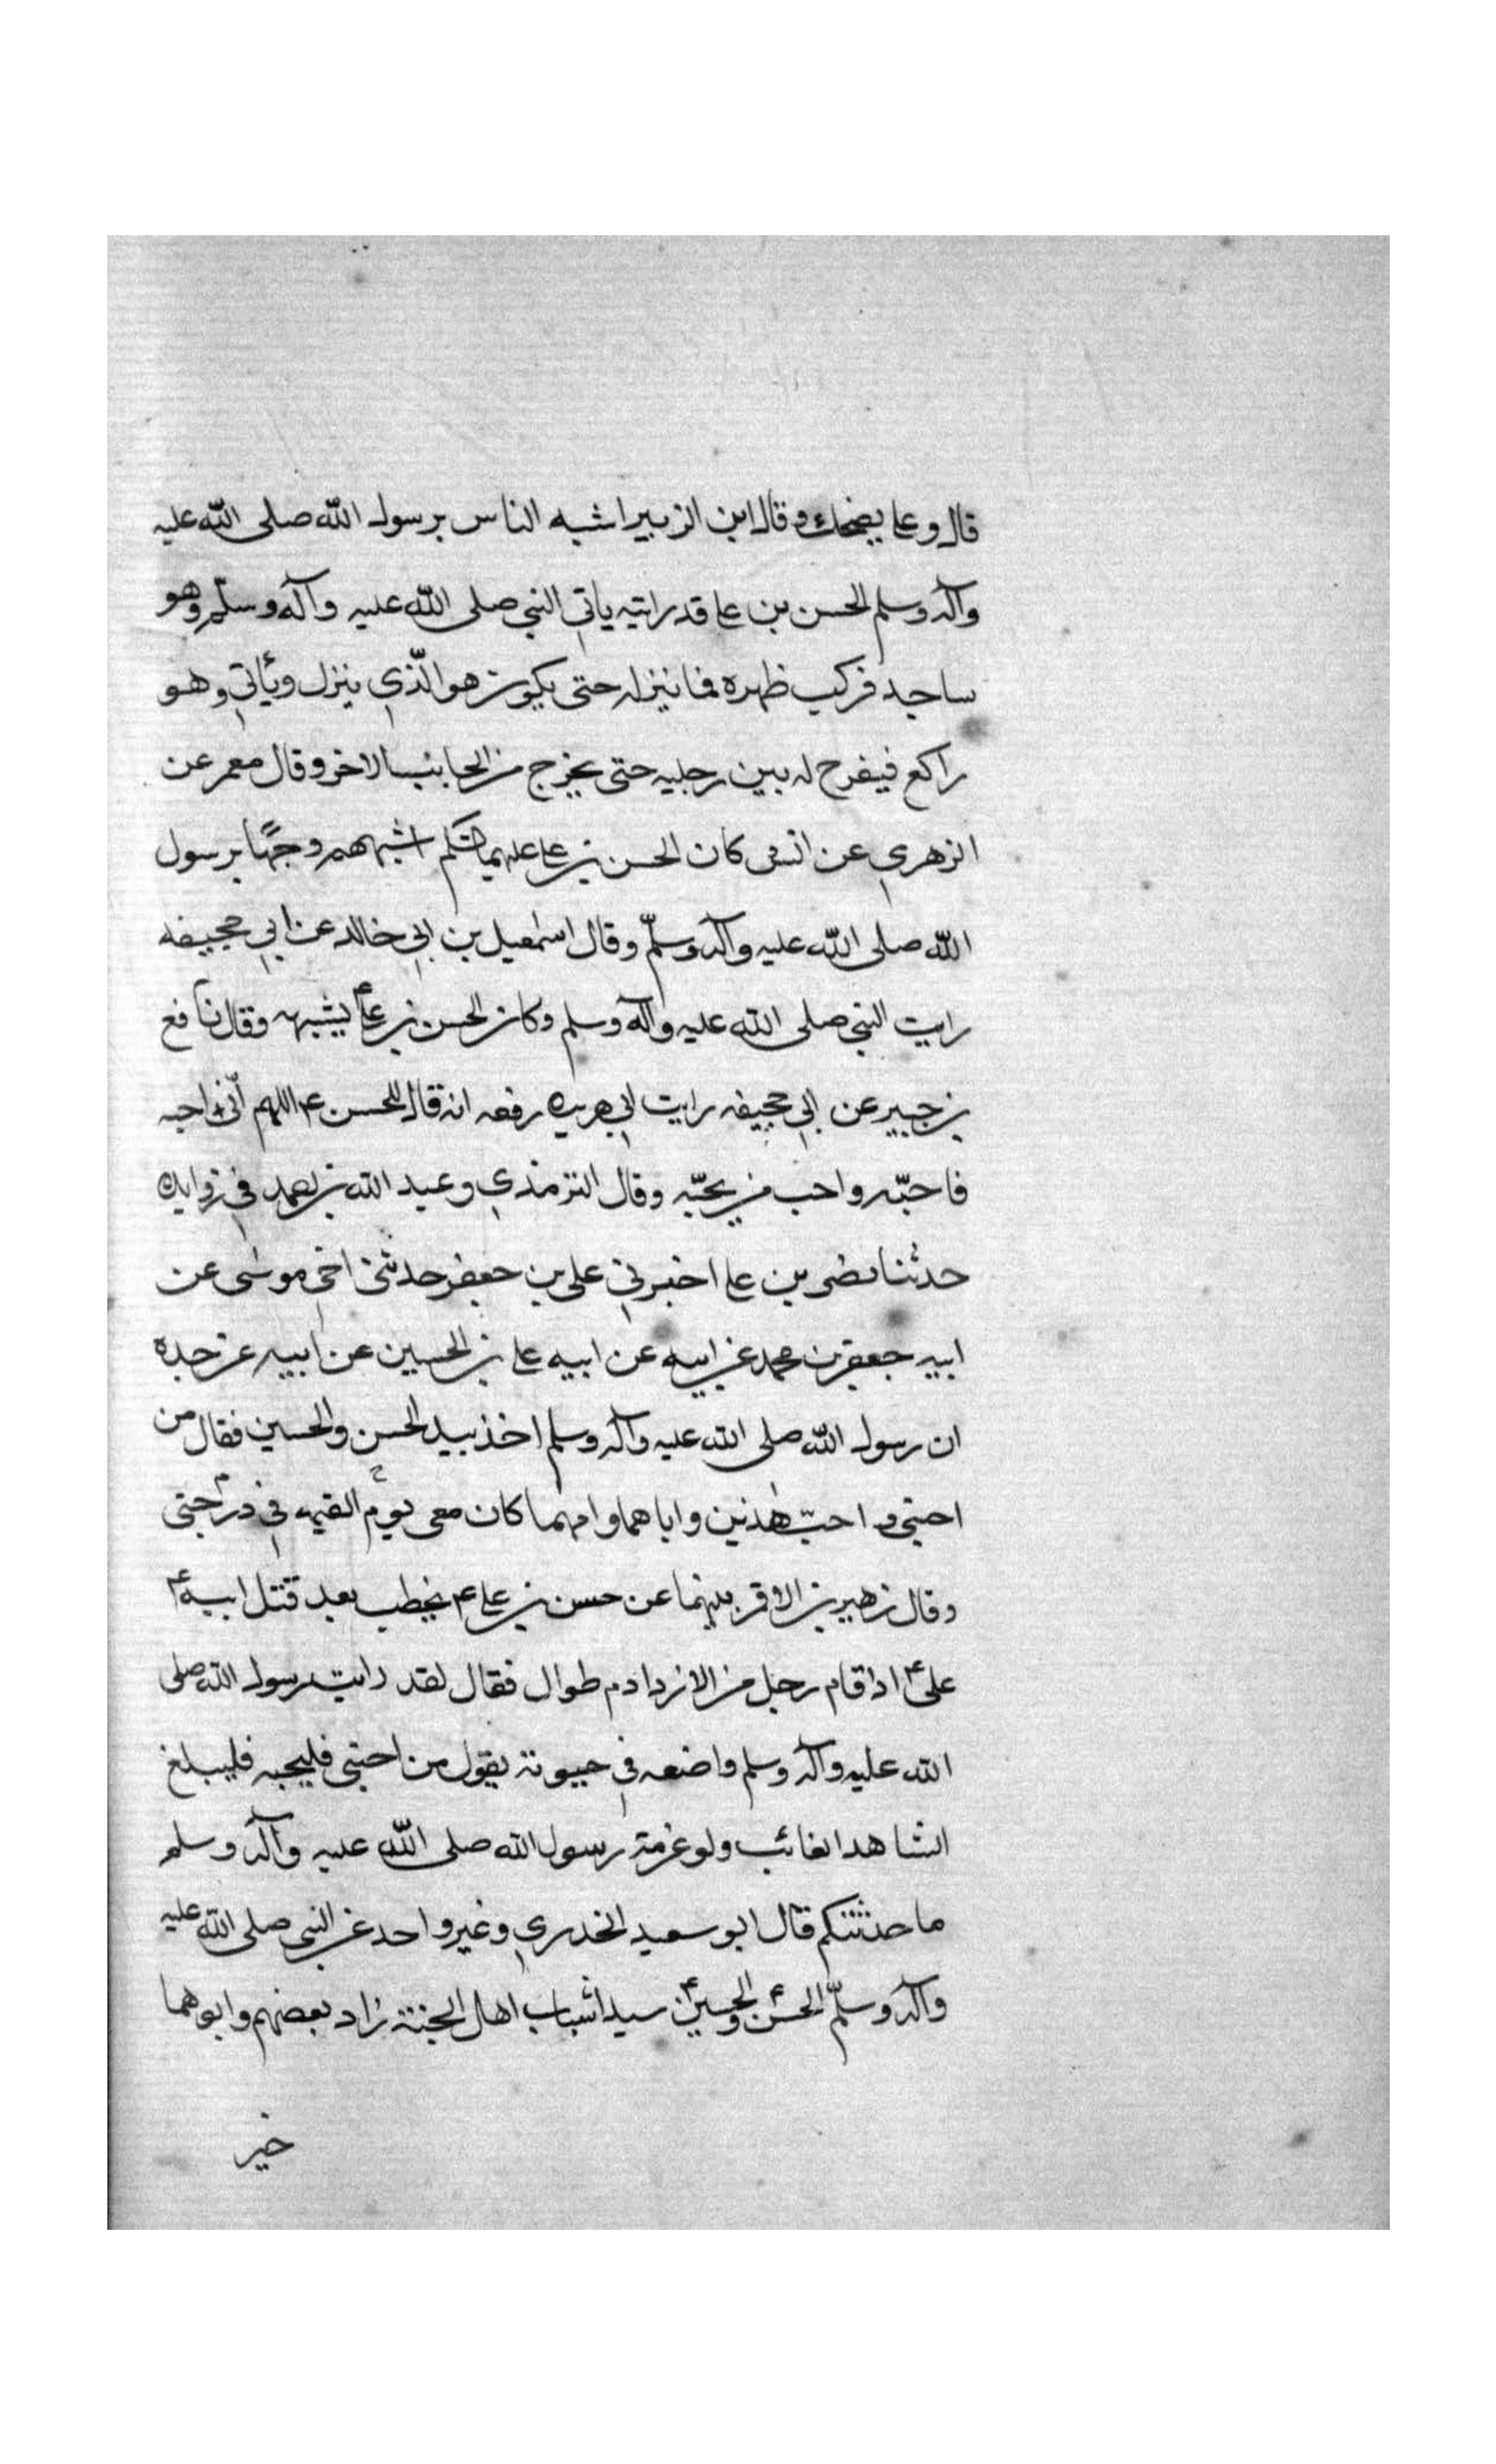 قال وعلي يضحك وقال ابن الزبير اشبه الناس برسول الله صلى الله عليه
وآله وسلم الحسن بن علي قد رايته ياتي النبي صلى الله عليه وآله وسلّم وهو
ساجد فركب ظهره فما ينزله حتى يكون هو الّذي ينزل ويأتي وهو
راكع فيفرح له بين رجليه حتى يخرج من الجانب الاخر وقال معمر عن
الزهري عن انس كان الحسن بن علي عليهما السّلم اشبههم وجهًا برسول
الله صلى الله عليه وآله وسلّم وقال اسمٰعيل بن ابي خالد عن ابي حجيفه
رايت النبي صلى الله عليه وآله وسلم وكان الحسن بن علي ع يشبهه وقال نافع
بن جبير عن ابي حجيفه رايت ابي هريره رفعه انه قال للحسن ع اللهم انّي احبه
فاحبّه واحب من يحبّه وقال الترمذي وعبد الله بن احمد في زوايده
حدثنا نضر بن علي اخبرني علي بن جعفر حدثني اخي موسى عن
ابيه جعفر بن محمد عن ابيه عن ابيه علي بن الحسين عن ابيه عن جده
ان رسول الله صلى الله عليه وآله وسلم اخذ بيد الحسن والحسين فقال من
احبني واحبّ هٰذين واباهما وامهما كان معي يوم القيمه في درجتي
وقال زهير بن الاقمر بينما عن حسن بن علي ع يخطب بعد قتل ابيه ع
علي ع اذ قام رجل من الازد ادم طوال فقال لقد رايت رسول الله صلى
الله عليه وآله وسلم واضعه في حبوته يقول من احبني فليحبه فليبلغ
الشاهد الغائب ولو عزمة رسول الله صلى الله عليه وآله وسلم
ما حدثتكم قال ابو سعيد الخدري وغير واحد عن النبي صلى الله عليه
وآله وسلّم الحسن ع والحسين ع سيدا شباب اهل الجنة زاد بعضهم وابوهما
خير